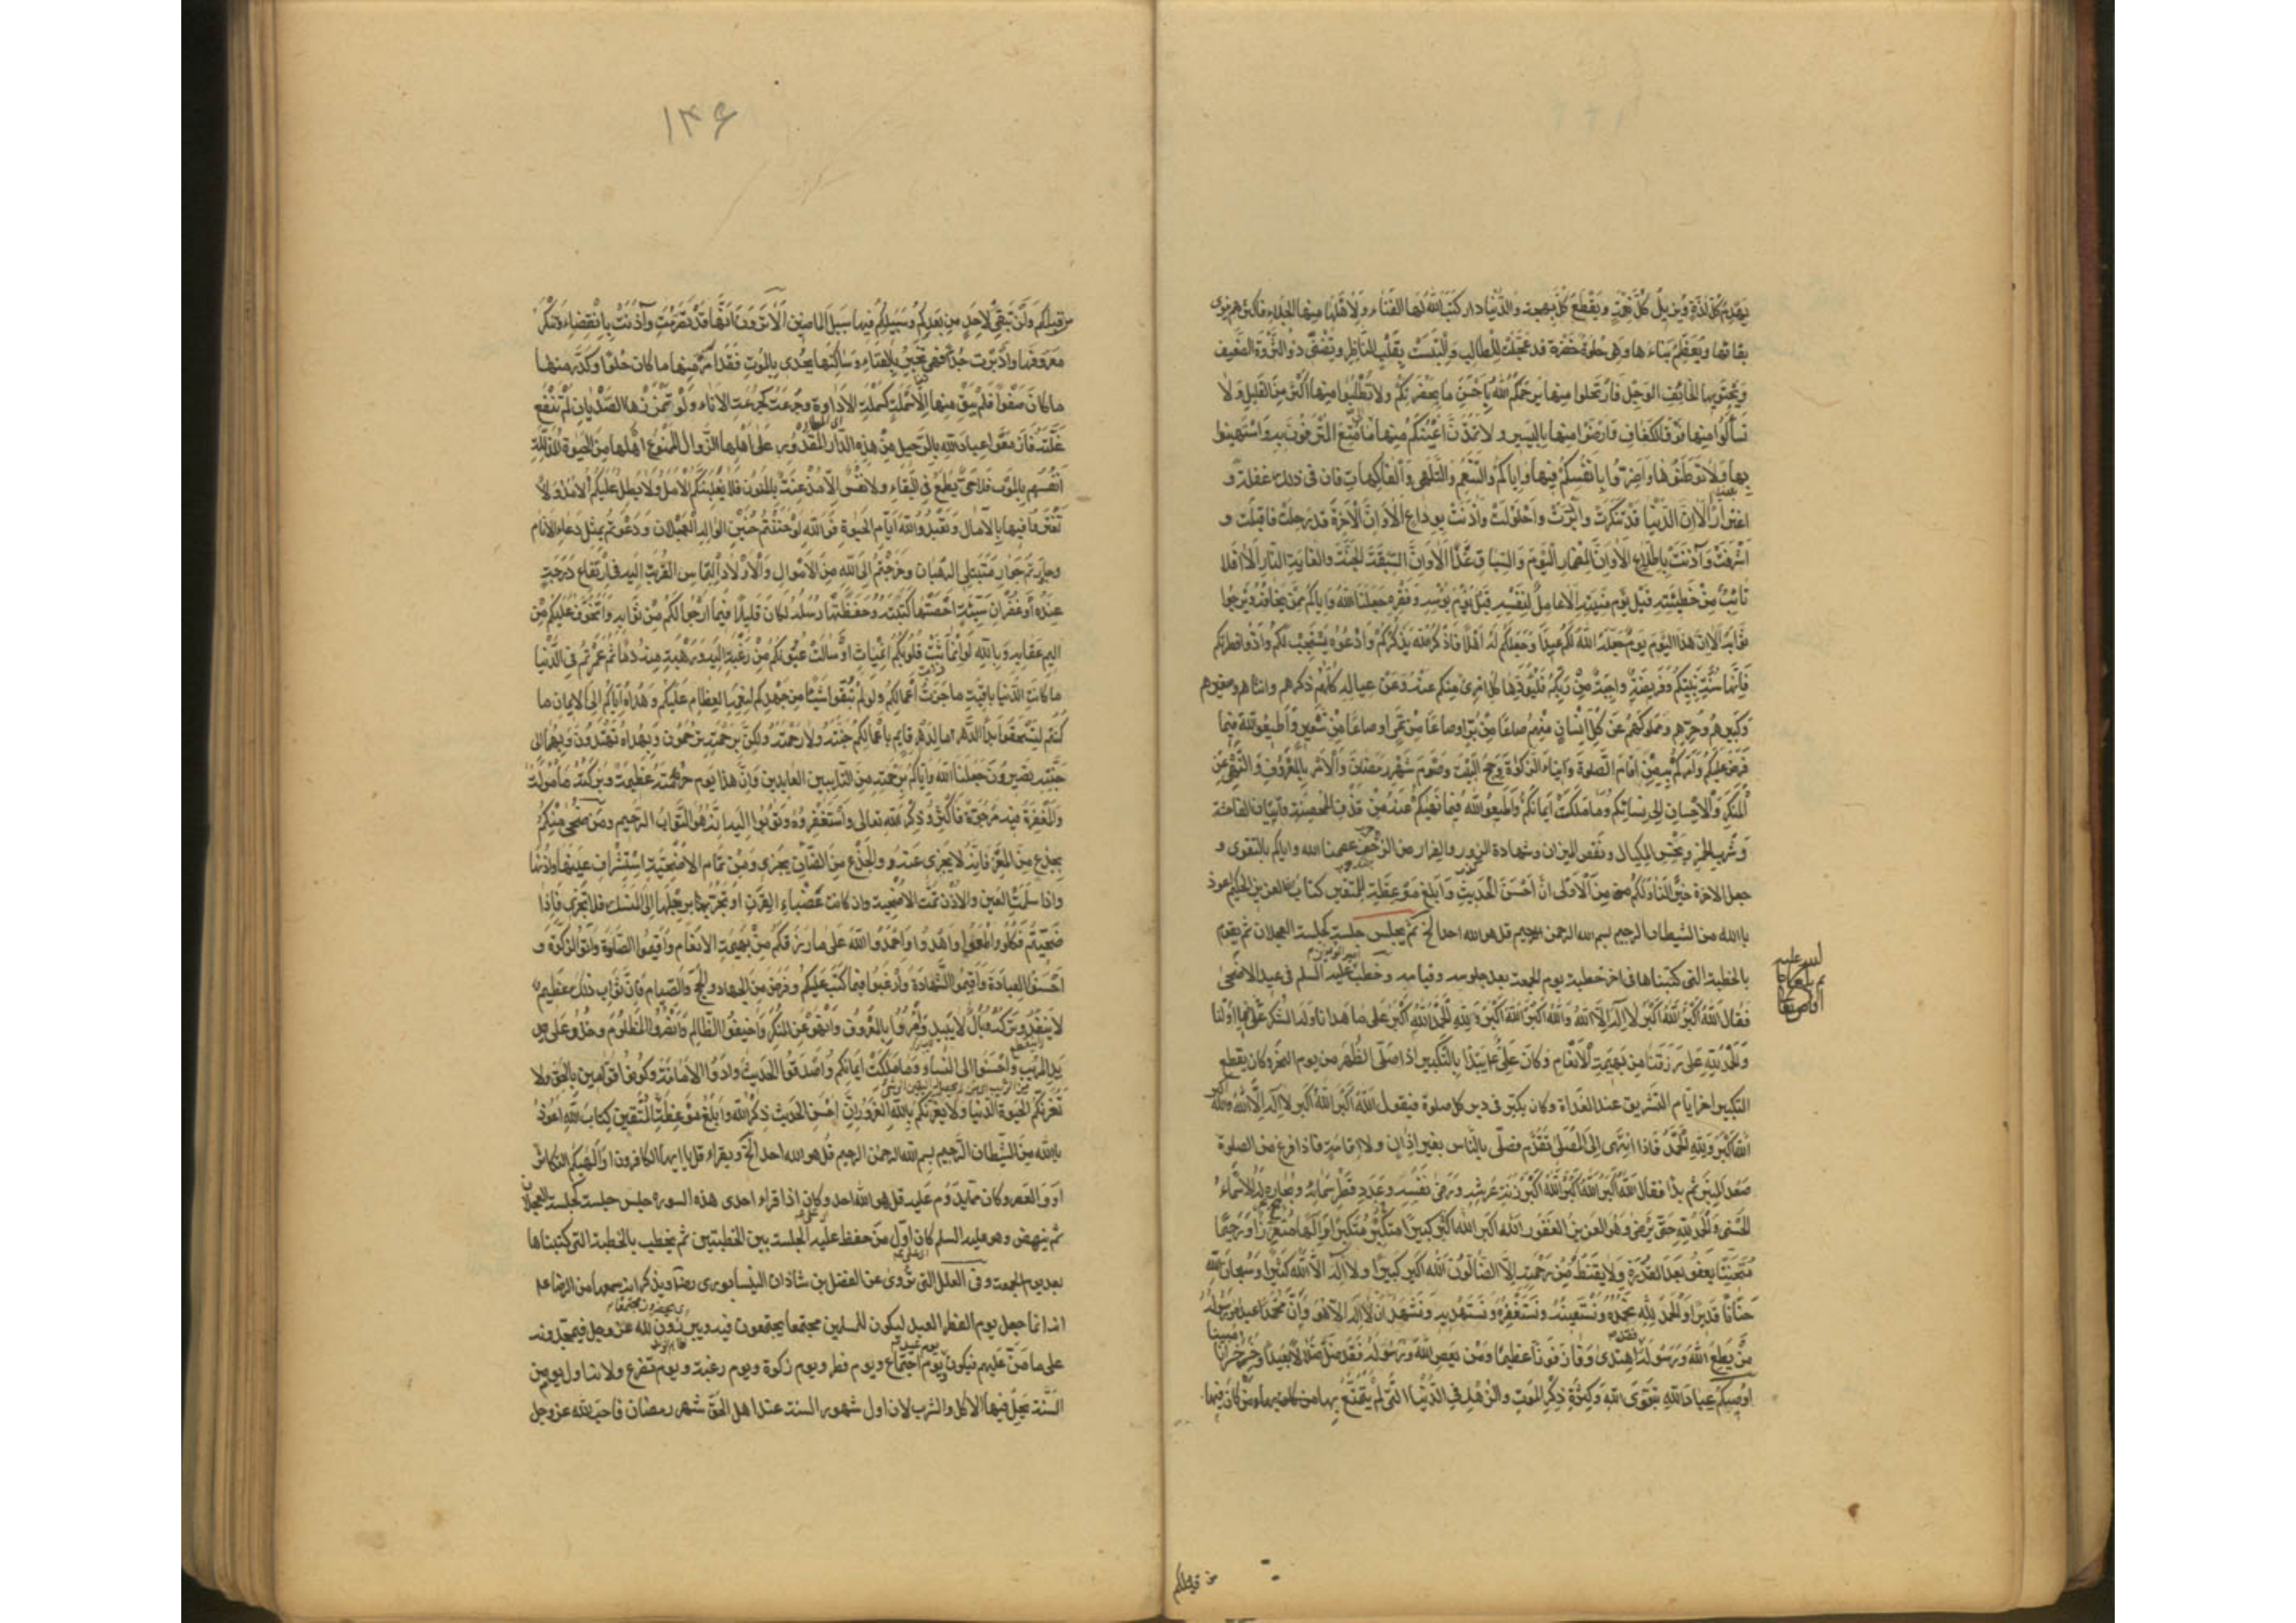 يَهْدِمُ كُلَّ لَذَّةٍ وَيُزِيلُ كُلَّ نِعْمَةٍ وَيَقْطَعُ كُلَّ بهجة والدُّنيا دار كَتَبَ اللهُ لَهَا الفَنَاءَ وَلِأَهْلِهَا مِنها الجَلاء فاكثرهم ينوى
بقائها وَيُعَظِّمُ بِنَاءَها وَهِيَ حُلْوَةٌ خَضِرَةٌ قد عُجِّلَتْ لِلطَّالِبِ وَالْتَبَسَتْ بِقَلْبِ النَّاظِرِ وَتُضْنِي ذو الثَّرْوَةِ الضَّعِيفَ
وَيَجْتَوِيهَا الخَائِفُ الوَجِلُ فَارْتَحِلُوا مِنها يَرْحَمُكُمُ اللهُ بِأَحْسَنِ مَا بِحَضْرَتِكُمْ وَلا تَطْلُبُوا مِنها أَكْثَرَ مِنَ القَلِيلِ وَلا
تَسْأَلُوا مِنها فَوْقَ الكَفَافِ وَارْضَوْا مِنها بِاليَسِيرِ وَلا تَمُدُّنَّ أَعْيُنَكُمْ مِنها إلى مَا مُتِّعَ المُتْرَفُونَ بِهِ وَاسْتَهِينُوا
بِها وَلا تُوَطِّنُوها وَأَضِرُّوا بِأَنْفُسِكُمْ فِيها وَإِيّاكُمْ وَالتَّنَعُّمَ وَالتَّلَهِّيَ وَالْفَاكِهَاتِ فَإِنَّ فِي ذلِكَ غفلة و
اغترارًا أَلا إِنَّ الدُّنْيَا قَدْ تَنَكَّرَتْ وَأَدْبَرَتْ وَاحْلَوْلَتْ وَآذَنَتْ بِوداعٍ أَلا وَإِنَّ الْآخِرَةَ قَدْ رحلت فاقبلت و
اشْرَفَتْ وَآذَنَتْ بِاطِّلاعٍ أَلا وَإِنَّ المِضْمَارَ الْيَوْمَ وَالسِّبَاقَ غَدًا أَلا وَإِنَّ السَّبَقَةَ الجَنَّةُ والغايةَ النَّارُ أَلا أفلا
تَائِبٌ مِنْ خَطِيئَتِهِ قَبْلَ يَوْمِ مَنِيَّتِهِ أَلا عَامِلٌ لِنَفْسِهِ قَبْلَ يَوْمِ بُؤْسِهِ وَفَقْرِهِ جَعَلَنَا اللهُ وَإِيّاكُمْ مِمَّنْ يَخَافُهُ وَيَرْجُو
ثَوَابَهُ أَلا إِنَّ هذَا اليَوْمَ يَوْمٌ جَعَلَهُ اللهُ لَكُمْ عِيدًا وَجَعَلَكُمْ لَهُ أَهْلًا فَاذْكُرُوا اللهَ يَذْكُرْكُمْ وَادْعُوهُ يَسْتَجِبْ لَكُمْ وَأَدُّوا فطرتكم
فَإِنَّهَا سُنَّةُ نَبِيِّكُمْ وَفَرِيضَةٌ وَاجِبَةٌ مِنْ رَبِّكُمْ فَلْيُؤَدِّها كلّ امرئ مِنكم عَنْهُ وَعَنْ عِيالِهِ كلّهم ذكرهم وانثاهم وصغيرهم
وَكَبِيرِهِمْ وَحُرِّهِمْ وَمَمْلُوكِهِمْ عَنْ كُلِّ إِنْسانٍ مِنْهُمْ صاعًا مِنْ بُرٍّ او صاعًا مِنْ تَمْرٍ او صاعًا مِنْ شَعِيرٍ وَأَطِيعُوا اللهَ فِيمَا
فَرَضَ عَلَيْكُمْ وَأَمَرَكُمْ بِهِ مِنْ إِقَامِ الصَّلوةِ وَإِيتَاءِ الزَّكوةِ وَحِجِّ البَيْتِ وَصَوْمِ شَهْرِ رَمَضَانَ وَالأَمْرِ بِالمَعْرُوفِ وَالنَّهْيِ عَنِ
المُنْكَرِ وَالإِحْسَانِ إِلَى نِسَائِكُمْ وَمَا مَلَكَتْ أَيْمَانُكُمْ وَأَطِيعُوا اللهَ فِيمَا نَهَاكُمْ عَنْهُ مِنْ قَذْفِ المُحْصَنَةِ وَإِتْيَانِ الفاحشة
وَشُرْبِ الخَمْرِ وَبَخْسِ المِكْيَالِ وَنَقْصِ المِيزانِ وشهادة الزور والفرار من الزحف عصمنا الله واياكم بالتقوى و
جعل الآخرة خَيْرًا لَنَا وَلَكُمْ مِنَ الأُولَى انَّ أَحْسَنَ الْحَدِيثِ وَأَبْلَغَ مَوْعِظَةِ المتقين كتابُ الله العزيز الحكيم اعوذ
بالله من الشيطان الرجيم بسم الله الرحمن الرحيم قل هو الله احد الخ ثم يجلس جلسة كجلسة العجلان ثم يقوم
بالخطبة التى كتبناها فى اخر خطبة يوم الجمعة بعد جلوسه وقيامه وخطب عليه السلم فى عيد الاضحى
فَقَالَ اللهُ أَكْبَرُ اللهُ أَكْبَرُ لا إِلهَ إِلَّا اللهُ وَاللهُ أَكْبَرُ اللهُ أَكْبَرُ وَلِلّهِ الْحَمْدُ اللهُ أَكْبَرُ عَلى ما هدانا وله الشُّكْرُ على ما أَوْلانا
وَالْحَمْدُ لِلّهِ عَلَى مَا رَزَقَنَا مِنْ بَهِيمَةِ الأَنْعَامِ وَكَانَ عَلِيٌّ ع يَبْدَأُ بِالتَّكْبِيرِ إِذَا صَلَّى الظُّهْرَ من يوم النحر وكان يقطع
التكبير اخر ايام التشريق عند الغداة وكان يكبّر فى دبر كل صلوة فيقول اللهُ أَكْبَرُ اللهُ أَكْبَرُ لا إِلهَ إِلَّا اللهُ والله اكبر
اللهُ أَكْبَرُ وَلِلّهِ الْحَمْدُ فَإِذَا انْتَهَى إِلَى المُصَلَّى تَقَدَّمَ فصلّى بالنّاس بغير اذان ولا اقامة فاذا فرغ من الصلوة
صَعِدَ المِنْبَرَ ثم بدأ فقال اللهُ أَكْبَرُ اللهُ أَكْبَرُ اللهُ أَكْبَرُ زِنَةَ عَرْشِهِ وَرِضَى نَفْسِهِ وَعَدَدَ قَطْرِ سَمَائِهِ وبحاره لَهُ الأَسْماءُ
الحُسْنَى وَالْحَمْدُ لِلّهِ حَتَّى يَرْضَى وَهُوَ العَزِيزُ الغَفُورُ اللهُ أكبر اللهُ أَكْبَرُ كَبِيرًا مُتَكَبِّرًا وَإِلهًا مُتَعَزِّزًا وَرَحِيمًا
مُتَحَنِّنًا يَعْفُو بَعْدَ القُدْرَةِ وَلا يَقْنَطُ مِنْ رَحْمَتِهِ إِلَّا الضَّالُّونَ اللهُ أكبر كبيرًا ولا إله إلّا الله كثيرًا وسبحان الله
حَنَّانًا قَدِيرًا وَالْحَمْدُ لِلّهِ نَحْمَدُهُ وَنَسْتَعِينُهُ وَنَسْتَغْفِرُهُ وَنَسْتَهْدِيهِ وَنَشْهَدُ أَنْ لا إِلهَ إِلَّا هُوَ وَأَنَّ مُحَمَّدًا عبده وَرَسُولُهُ
مَنْ يُطِعِ اللهَ وَرَسُولَهُ فقد اهتدى وَفَازَ فَوْزًا عَظِيمًا وَمَنْ يَعْصِ اللهَ وَرَسُولَهُ فَقَدْ ضَلَّ ضَلالًا بَعِيدًا وَخَسِرَ خُسْرَانًا مبينا
أُوصِيكُمْ عِبَادَ اللهِ بِتَقْوَى اللهِ وَكَثْرَةِ ذِكْرِ المَوْتِ وَالزُّهْدِ فِي الدُّنْيَا الَّتِي لَمْ يَتَمَتَّعْ بِها من كان فيها
من قبلكم
١٣۶
من قبلكم وَلَنْ تَبْقَى لِأَحَدٍ مِنْ بَعْدِكُمْ وَسَبِيلُكُمْ فِيها سَبِيلُ الماضِينَ أَلا تَرَوْنَ أَنَّهَا قَدْ تَصَرَّمَتْ وَآذَنَتْ بِانْقِضَاءٍ وَتَنَكَّرَ
مَعْرُوفُها وَأَدْبَرَتْ حذاء فَهِيَ تُخْبِرُ بِالفَنَاءِ وَسَاكِنُها يُحْدَى بِالمَوْتِ فَقَدْ أَمَرَّ مِنْها ما كان حُلْوًا وَكَدِرَ منها
ما كانَ صَفْوًا فَلَمْ يَبْقَ مِنها إِلَّا سَمَلَةٌ كَسَمَلَةِ الإداوة وجُرْعَةٌ كَجُرْعَةِ الإِناءِ وَلَوْ تَمَزَّزَها الصَّدْيَانُ لَمْ تَنْفَعْ
غُلَّتَهُ فَأَزْمِعُوا عباد الله بِالرَّحِيلِ مِنْ هذِهِ الدَّارِ المَقْدُورِ عَلَى أَهْلِها الزَّوَالُ المَمْنُوعِ أَهْلُها مِنَ الحَيوةِ المذلّلة
أَنْفُسُهُمْ بِالمَوْتِ فَلا حَيٌّ يَطْمَعُ فِي البَقَاءِ وَلا نَفْسٌ إِلَّا مُذْعِنَةٌ بِالمَنُونِ فَلا يَغْلِبَنَّكُمُ الأَمَلُ وَلا يَطُلْ عَلَيْكُمُ الأَمَدُ وَلا
تَغْتَرُّوا فِيها بِالآمَالِ وَتَعَبَّدُوا لله أَيّامَ الحَيوةِ فَوَاللهِ لَوْ حَنَنْتُمْ حَنِينَ الوَالِهِ العَجْلان وَدَعَوْتُمْ بِمِثْلِ دعاء الانام
وجأرتم جُؤَارَ مُتَبَتِّلِي الرُّهْبَانِ وَخَرَجْتُمْ إِلَى اللهِ مِنَ الأَمْوَالِ وَالأَوْلادِ الْتِمَاسَ القُرْبَةِ إِلَيْهِ فِي ارْتِفَاعِ دَرَجَةٍ
عِنْدَهُ أَوْ غُفْرَانِ سَيِّئَةٍ أَحْصَتْها كَتَبَتُهُ وَحَفِظَتْها رُسُلُهُ لَكانَ قَلِيلًا فِيمَا أَرْجُو لَكُمْ مِنْ ثَوَابِهِ وَأَتَخَوَّفُ عَلَيْكُمْ مِنْ
أليم عقابه وَبِاللهِ لَوِ انْمَاثَتْ قُلُوبُكُمُ انْمِيَاثًا وَسَالَتْ عُيُونُكُمْ مِنْ رَغْبَةٍ إِلَيْهِ وَرَهْبَةٍ مِنْهُ دَمًا ثُمَّ عُمِّرْتُمْ فِي الدُّنْيَا
ما كانتِ الدُّنْيَا باقِيَةً ما جَزَتْ أَعْمَالُكُمْ وَلَوْ لَمْ تُبْقُوا شَيْئًا مِنْ جُهْدِكُمْ لِنِعَمِهِ العِظَامِ عَلَيْكُمْ وَهُدَاهُ إِيّاكُمْ إِلَى الإيمان ما
كُنْتُمْ لِتَسْتَحِقُّوا أَبَدَ الدَّهْرِ ما الدَّهْرُ قَائِمٌ بِأَعْمَالِكُمْ جَنَّتَهُ وَلا رَحْمَتَهُ وَلكِنْ بِرَحْمَتِهِ تُرْحَمُونَ وَبِهُدَاهُ تَهْتَدُونَ وَبِهِمَا إلى
جَنَّتِهِ تَصِيرُونَ جَعَلَنَا اللهُ وَإِيّاكُمْ بِرَحْمَتِهِ مِنَ التَّائِبِينَ العَابِدِينَ وَإِنَّ هذَا يَوْمٌ حُرْمَتُهُ عَظِيمَةٌ وَبَرَكَتُهُ مَأْمُولَةٌ
وَالمَغْفِرَةُ فِيهِ مَرْجُوَّةٌ فَأَكْثِرُوا ذِكْرَ الله تعالى وَاسْتَغْفِرُوهُ وَتُوبُوا إِلَيْهِ إِنَّهُ هُوَ التَّوَّابُ الرَّحِيمُ وَمَنْ ضَحَّى مِنْكُمْ
بِجَذَعٍ مِنَ المَعْزِ فَإِنَّهُ لا يُجْزِي عَنْهُ وَالجَذَعُ مِنَ الضَّأْنِ يُجْزِي وَمِنْ تَمَامِ الأُضْحِيَّةِ اسْتِشْرَافُ عَيْنِها وَأُذُنِها
وَإِذَا سَلِمَتِ العَيْنُ وَالأُذُنُ تَمَّتِ الأُضْحِيَّةُ وَإِنْ كَانَتْ عَضْبَاءَ القَرْنِ أَوْ تَجُرُّ بِرِجْلِها إِلَى المَنْسَكِ فَلا تُجْزِي فَإِذَا
ضَحَّيْتُمْ فَكُلُوا وَأَطْعِمُوا وَاهْدُوا وَاحْمَدُوا اللهَ عَلَى ما رَزَقَكُمْ مِنْ بَهِيمَةِ الأَنْعَامِ وَأَقِيمُوا الصَّلوةَ وَآتُوا الزَّكوةَ وَ
أَحْسِنُوا العِبَادَةَ وَأَقِيمُوا الشَّهَادَةَ وَارْغَبُوا فِيمَا كَتَبَ عَلَيْكُمْ وَفَرَضَ مِنَ الجِهَادِ وَالحَجِّ وَالصِّيَامِ فَإِنَّ ثَوَابَ ذلِكَ عَظِيمٌ
لا يَنْفَدُ وَتَرْكَهُ وَبَالٌ لا يَبِيدُ وَأْمُرُوا بِالمَعْرُوفِ وَانْهَوْا عَنِ المُنْكَرِ وَأَخِيفُوا الظَّالِمَ وَانْصُرُوا المَظْلُومَ وَخُذُوا عَلَى
يَدِ المُرِيبِ وَأَحْسِنُوا إِلَى النِّسَاءِ وَمَا مَلَكَتْ أَيْمَانُكُمْ وَاصْدُقُوا الحَدِيثَ وَأَدُّوا الأَمَانَةَ وَكُونُوا قَوَّامِينَ بِالحَقِّ وَلا
تَغُرَّنَّكُمُ الحَيوةُ الدُّنْيَا وَلا يَغُرَّنَّكُمْ بِاللهِ الغَرُورُ إِنَّ أَحْسَنَ الحَدِيثِ ذِكْرُ اللهِ وَأَبْلَغَ مَوْعِظَةِ المُتَّقِينَ كِتَابُ اللهِ أَعُوذُ
بِاللهِ مِنَ الشَّيْطَانِ الرَّجِيمِ بسم الله الرحمن الرحيم قُلْ هو الله احد الخ ويقراء قل يا ايها الكافرون او الهيكم التكاثر
او والعصر وكان ممّا يدوم عليه قل هو الله احد وكان اذا قراء احدى هذه السورة جلس جلسة كجلسة العجلان
ثم ينهض وهو عليه السلم كان اوّل من حفظ عليه الجلسة بين الخطبتين ثم يخطب بالخطبة التى كتبناها
بعد يوم الجمعة وفى العلل التى تُروى عن الفضل بن شاذان النيسابورى رض ويذكر انه سمعها من الرضا ع
انه انما جعل يوم الفطر العيد ليكون للمسلمين مجتمعا يجتمعون فيه ويبرزون لله عز وجل فيمجّدونه
على ما مَنَّ عليهم فيكون يوم عيد ويوم اجتماع ويوم فطر ويوم زكوة ويوم رغبة ويوم تضرع ولانه اول يوم من
السّنة يحلّ فيها الاكل والشرب لان اول شهور السنة عند اهل الحقّ شهر رمضان فاحبّ الله عز وجل